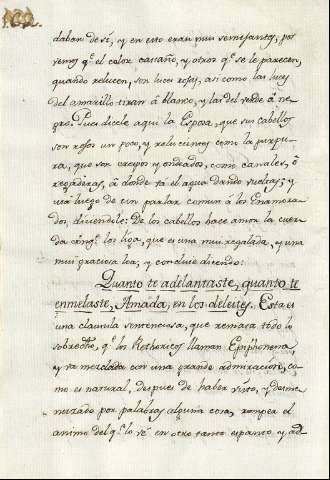 daban de sí, y en esto eran mui semejantes, por
vemos q.e el color castaño, y otros q.e se le parecen,
quando relucen, son luces rojas, asi como las luces
del amarillo tiran â blanco, y las del verde â ne-
gro. Pues dicele aqui la Esposa, que sus cabellos
son rojos un poco, y relucientes como la purpu-
ra, que son crespos y ondeados, como canales, ô
regaderas, â donde va el agua dando vueltas; y
usa luego de un parlar comun â los Enamora-
dos, diciendole: De los cabellos hace amor la cuer-
da conq.e los liga, que es una mui regalada, y una
mui graciosa lea, y concluie diciendo:
Quanto te adelantaste, quanto te
enmelaste, Amada, en los deleites. Esta es
una clausula sentenciosa, que remata todo lo
sobredho, q.e los Rethoricos llaman Epiphonema,
y va mezclada con una grande admiracion, co-
mo es natural, despues de haber visto, y desme-
nuzado por palabras alguna cosa, rompea el
animo del q.e lo ve en otro tanto espanto, y ad